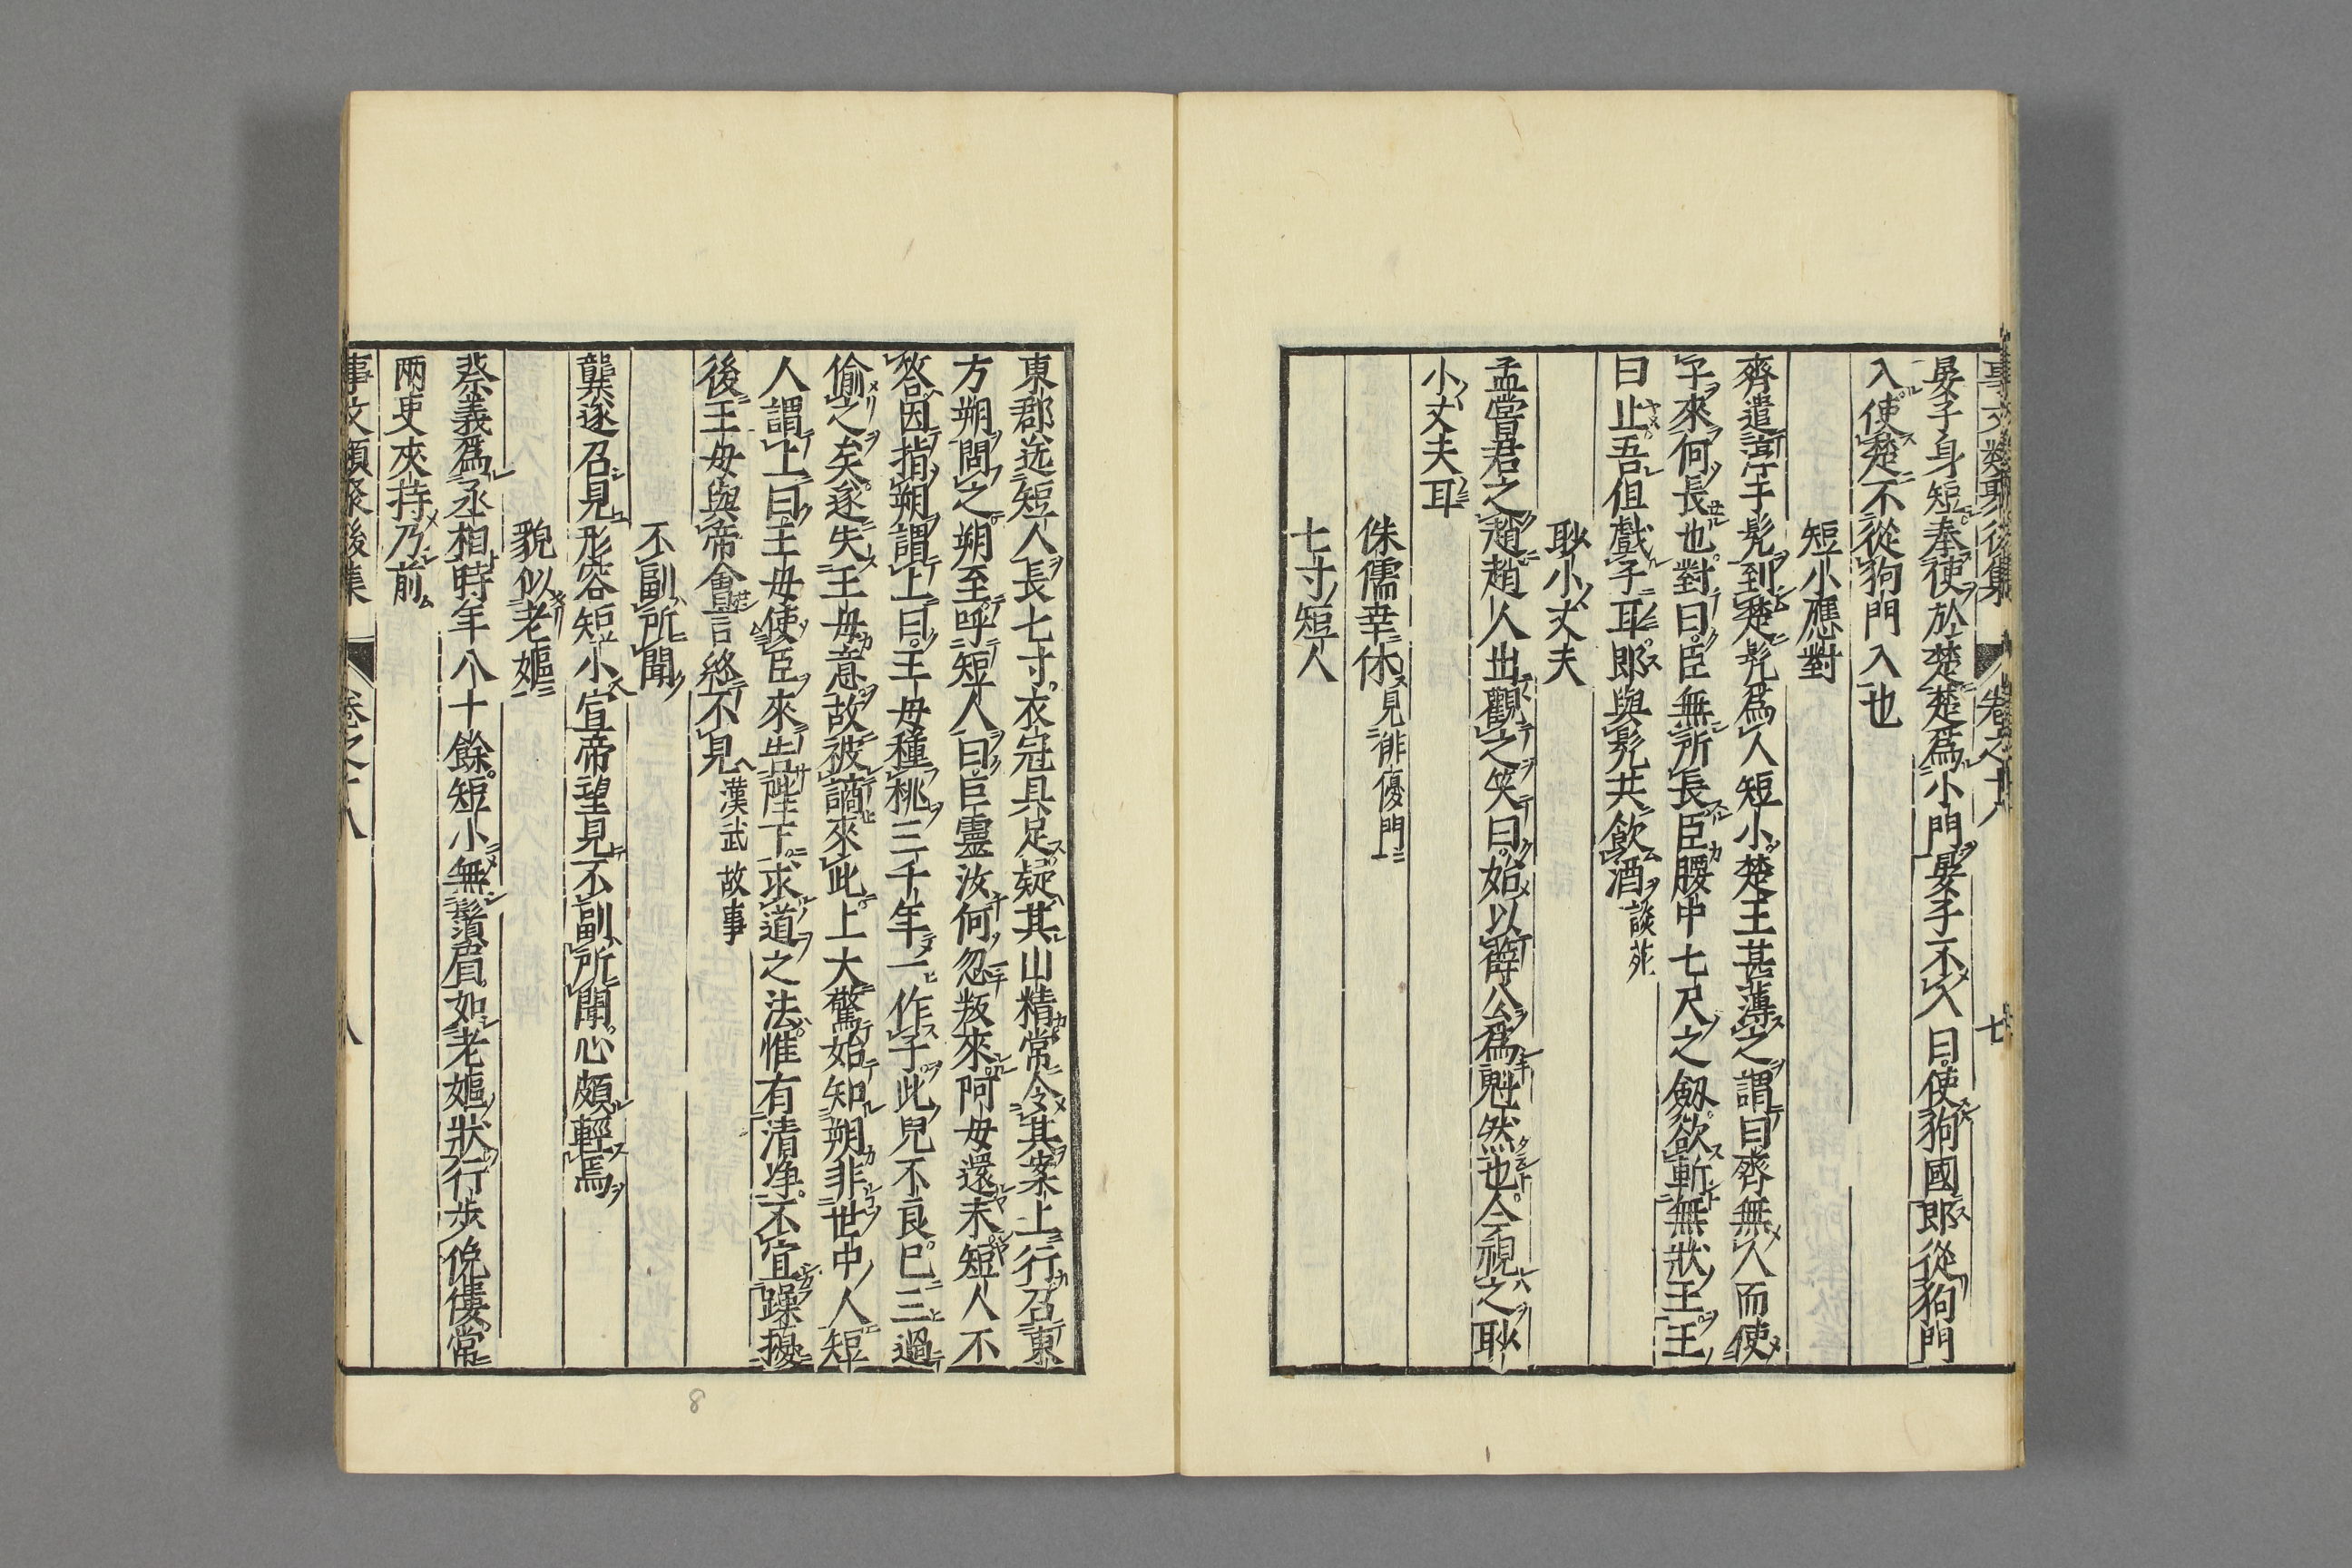 事文類聚後集 卷之十八 七
晏子身短奉使於楚楚爲小門晏子不入曰使狗國卽從狗門
入使楚不從狗門入也
短小應對
齊遣淳于髡到楚髡爲人短小楚王甚薄之謂曰齊無人而使
子來何長也對曰臣無所長臣腰中七尺之劔欲斬無狀王王
曰止吾但戲子耳卽與髡共飮酒談苑
眇小丈夫
孟嘗君之趙趙人出觀之笑曰始以薛公爲魁然也今視之眇
小丈夫耳
侏儒幸休見俳優門
七寸短人
東郡送短人長七寸衣冠具足疑其山精常令其案上行召東
方朔問之朔至呼短人曰巨靈汝何忽叛來阿母還未短人不
答因指朔謂上曰王母種桃三千年一作子此兒不良已三過
偷之矣遂失王母意故被謫來此上大驚始知朔非世中人短
人謂上曰王母使臣來告陛下求道之法惟有清淨不宜躁擾
後王母與帝會言終不見漢武故事
不副所聞
龔遂召見形容短小宣帝望見不副所聞心頗輕焉
貌似老嫗
蔡義爲丞相時年八十餘短小無鬚眉如老嫗狀行步俛僂常
兩吏夾持乃前
事文類聚後集 卷之十八 八
8